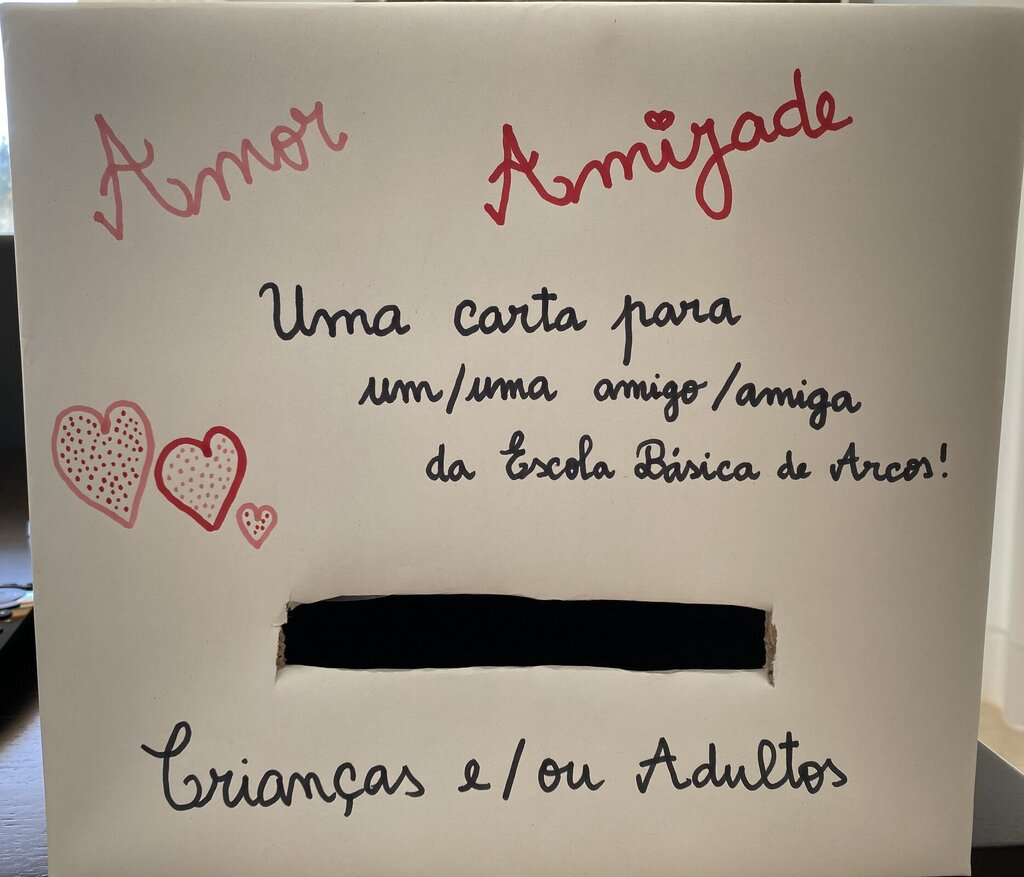 Amor Amizade
Uma carta para
um/uma amigo/amiga
da Escola Básica de Arcos!
Crianças e/ou Adultos